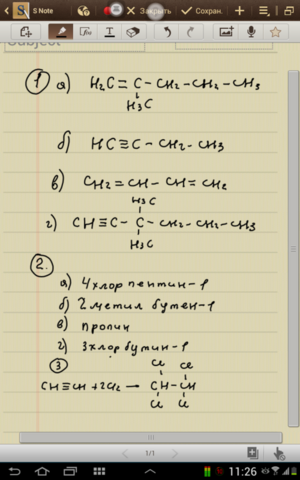 S Note
Закрыть
Сохран.
Subject
1 а) H2C=C-CH2-CH2-CH3
H3C
б) HC≡C-CH2-CH3
в) CH2=CH-CH=CH2
H3C
г) CH≡C-C-CH2-CH2-CH3
H3C
2.
а) 4 хлор пентин-1
б) 2 метил бутен-1
в) пропин
г) 3 хлор бутин-1
3
Cl Cl
CH≡CH+2Cl2→CH-CH
Cl Cl
1/1
11:26